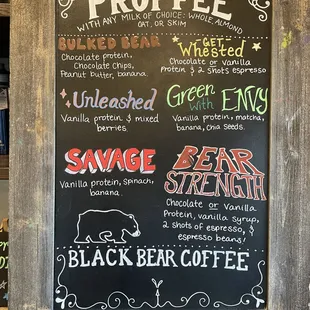 PROFFEE
WITH ANY MILK OF CHOICE: WHOLE, ALMOND
OAT, OR SKIM
BULKED BEAR
Chocolate protein,
Chocolate chips,
Peanut butter, banana.
GET
Whested
Chocolate or Vanilla
Protein & 2 Shots espresso
Unleashed
Vanilla protein & mixed
berries.
Green
with ENVY
Vanilla protein, matcha,
banana, Chia Seeds.
SAVAGE
Vanilla protein, spinach,
banana.
BEAR
STRENGTH
Chocolate or Vanilla
Protein, vanilla syrup,
2 shots of espresso, &
espresso beans!
BLACK BEAR COFFEE